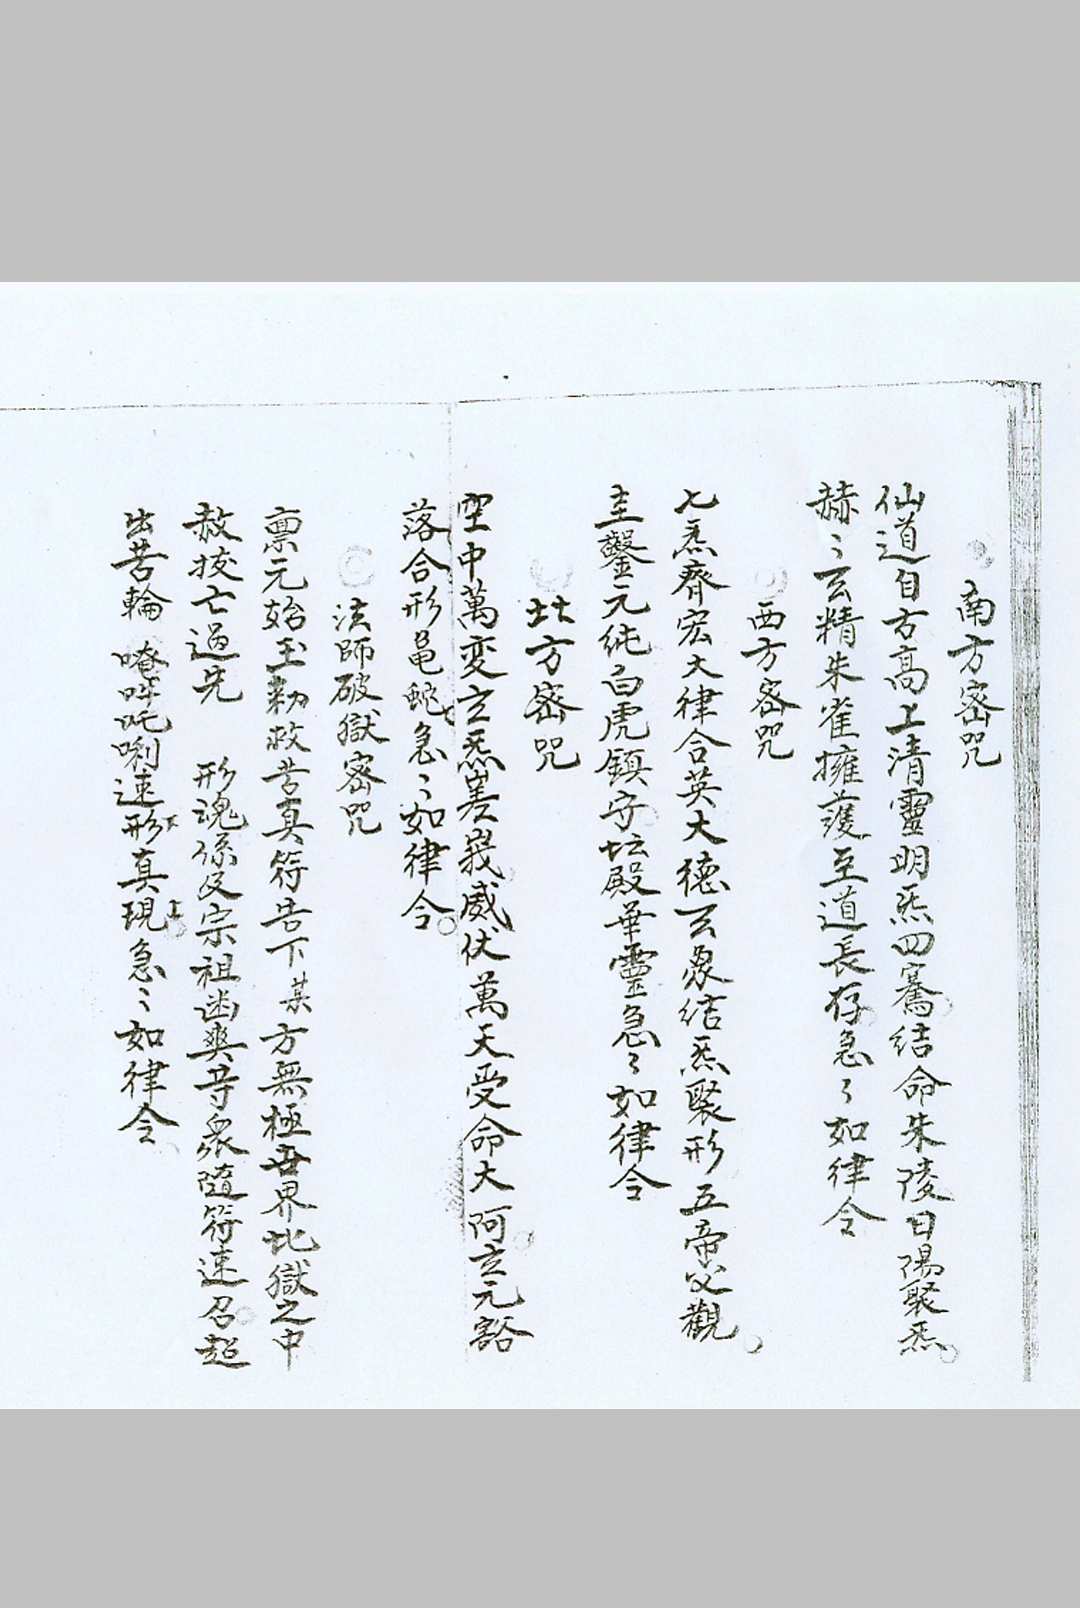 南方密咒
仙道自古高上清靈明炁四騫結命朱陵日陽聚炁
赫〻玄精朱雀擁護至道長存急〻如律令
西方密咒
七炁齊宏大律合英大德玄象結炁聚形五帝父觀
主鑿元純白虎鎮守坛殿華靈急〻如律令
北方密咒
空中萬変立炁嵳峩威伏萬天受命大阿立元豁
落合形黽蛇急〻如律令
法師破獄密咒
禀元始玉勅救苦真符告下某方無極世界地獄之中
赦拔亡過先 形魂係及宗祖幽爽等眾隨符速召超
出苦輪 唵吽吒唎速形下真現上急〻如律令